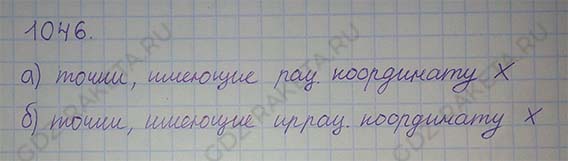 1046.
а) точки, имеющие рац. координату X
б) точки, имеющие иррац. координату X
GDZ-RAKETA.RU